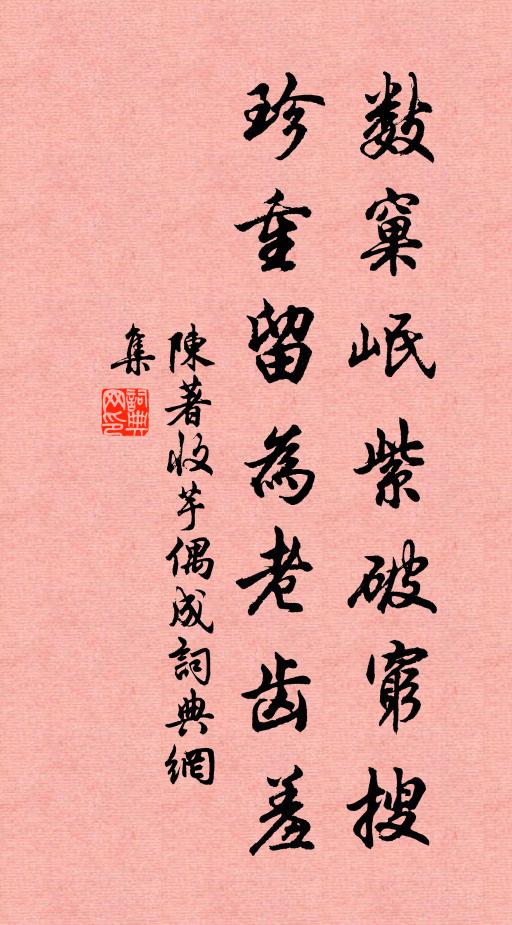 數窠岷紫破窮搜
珍重留為老齒羞
陳著收芋偶成詞典網
集
詞典
网印